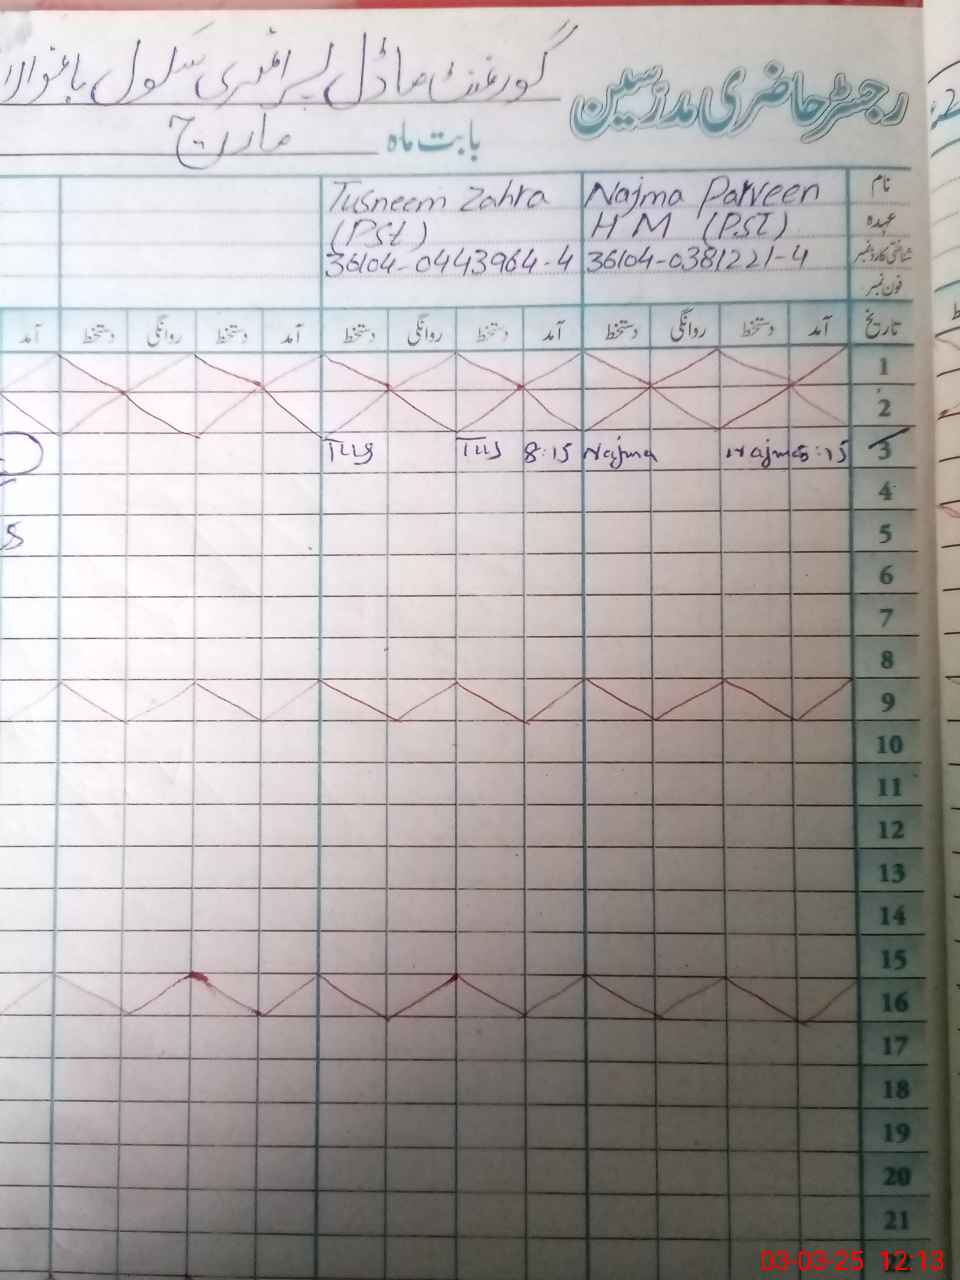 رجسٹر حاضری مدرسین
گورنمنٹ ماڈل پرائمری سکول
بابت ماہ مارچ
نام Najma Parveen Tusneem Zahra
عہدہ HM (P.ST) (PSt)
شناختی کارڈ نمبر 36104-0381221-4 36104-0443964-4
فون نمبر
تاریخ آمد دستخط روانگی دستخط آمد دستخط روانگی دستخط آمد دستخط روانگی دستخط آمد
1
2
3 Najma Najma 8:15 Tus Tus
4
5
6
7
8
9
10
11
12
13
14
15
16
17
18
19
20
21
03-03-25 12:13